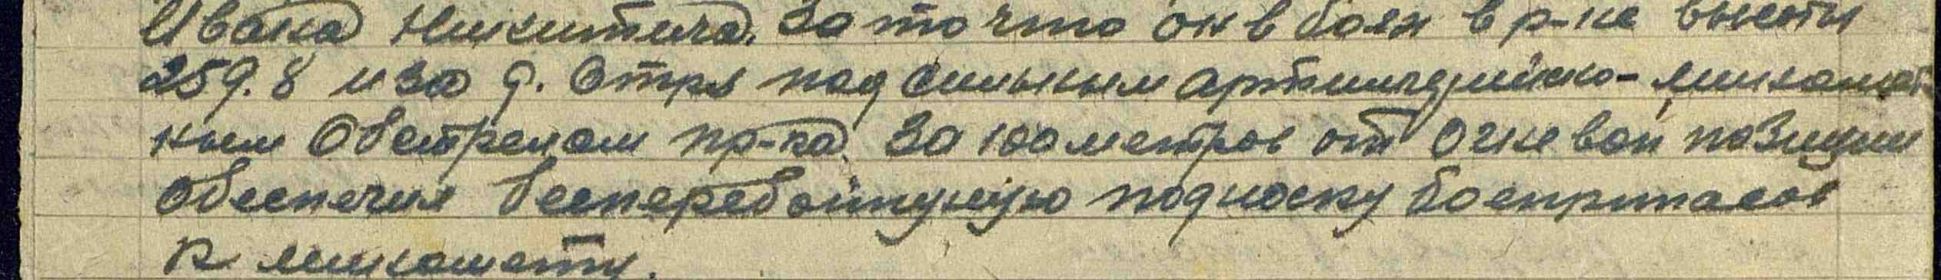 Ивана Никитича. За то что он в боях в р-не высоты
259.8 и за д. Отря под сильным артиллерийско-миномет-
ным обстрелом пр-ка за 100 метров от огневой позиции
обеспечил бесперебойную подноску боеприпасов
к миномету.